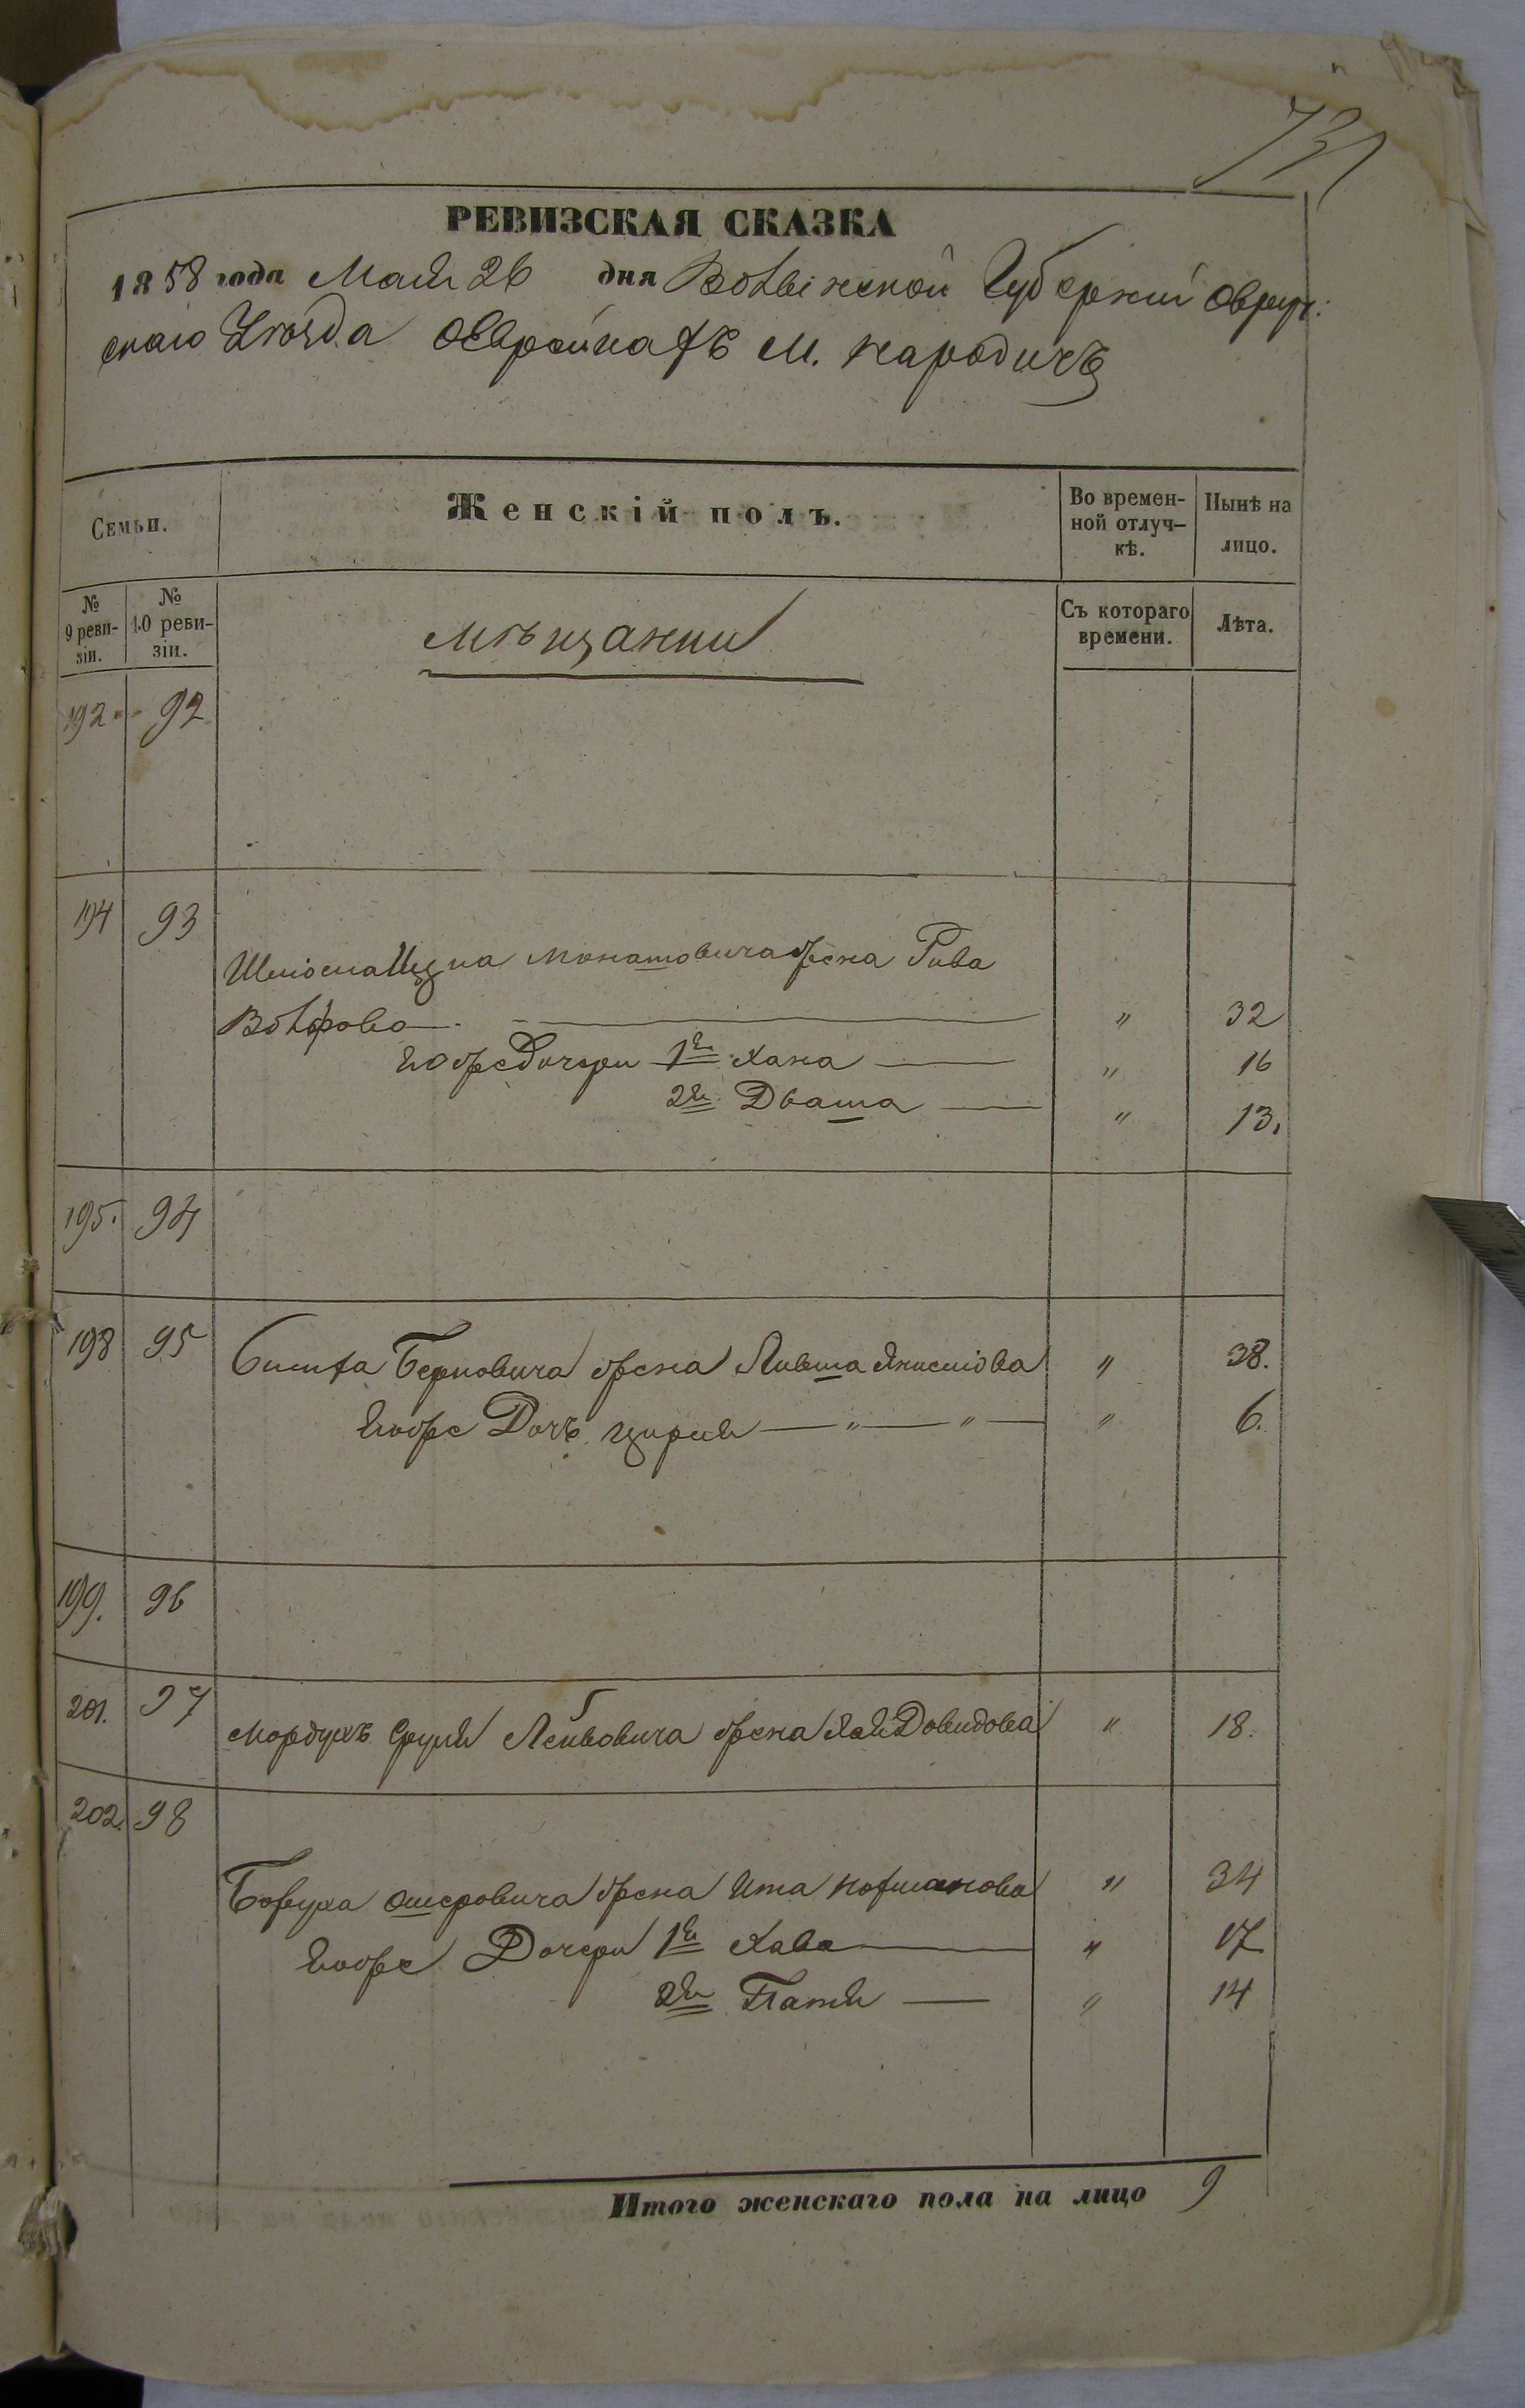 731
РЕВИЗСКАЯ СКАЗКА
1858 года Мая 26 дня Волынской Губерніи Овруч:
скаго Уѣзда о Евреинахъ М. Народичъ
Семьи.
Женскій полъ.
Во времен-
ной отлуч-
кѣ.
Нынѣ на
лицо.
№
9 реви-
зіи.
№
10 реви-
зіи.
мѣщанки
Съ котораго
времени.
Лѣта.
192 92
194 93
Шлiома Ицка жена Рива
Волфова " 32
Его же дочери 1я Хана " 16
2я Дваша " 13.
195. 94
198 95 Берковича жена Ливша " 38.
Его же Дочь Цирля " " " 6.
199. 96
201. 97 Мордухъ Сруля Лейбовича жена Хая Довидова " 18.
202. 98
Боруха Ошеровича жена Ита Колманова " 34
Его же Дочери 1я Хава " 17
2я " 14
Итого женскаго пола на лицо 9